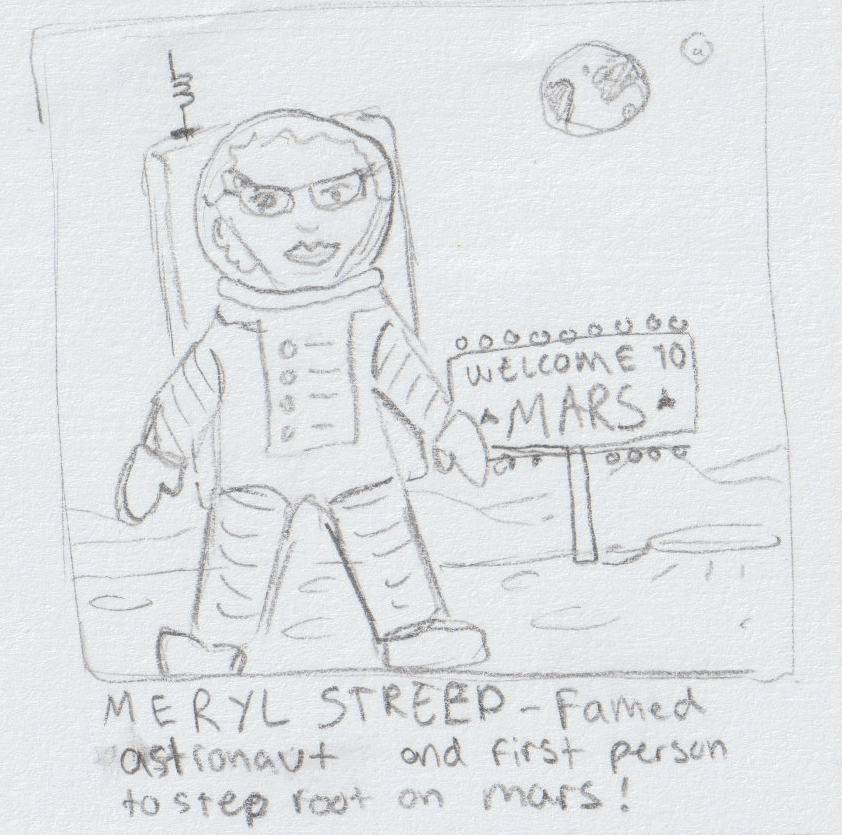 WELCOME TO
MARS
MERYL STREEP - Famed
astronaut and first person
to step foot on mars!